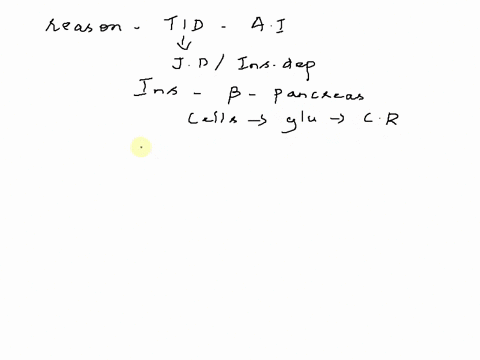 reason - T1D - A.I
J.D / Ins.dep
Ins - β - pancreas
cells → glu → C.R